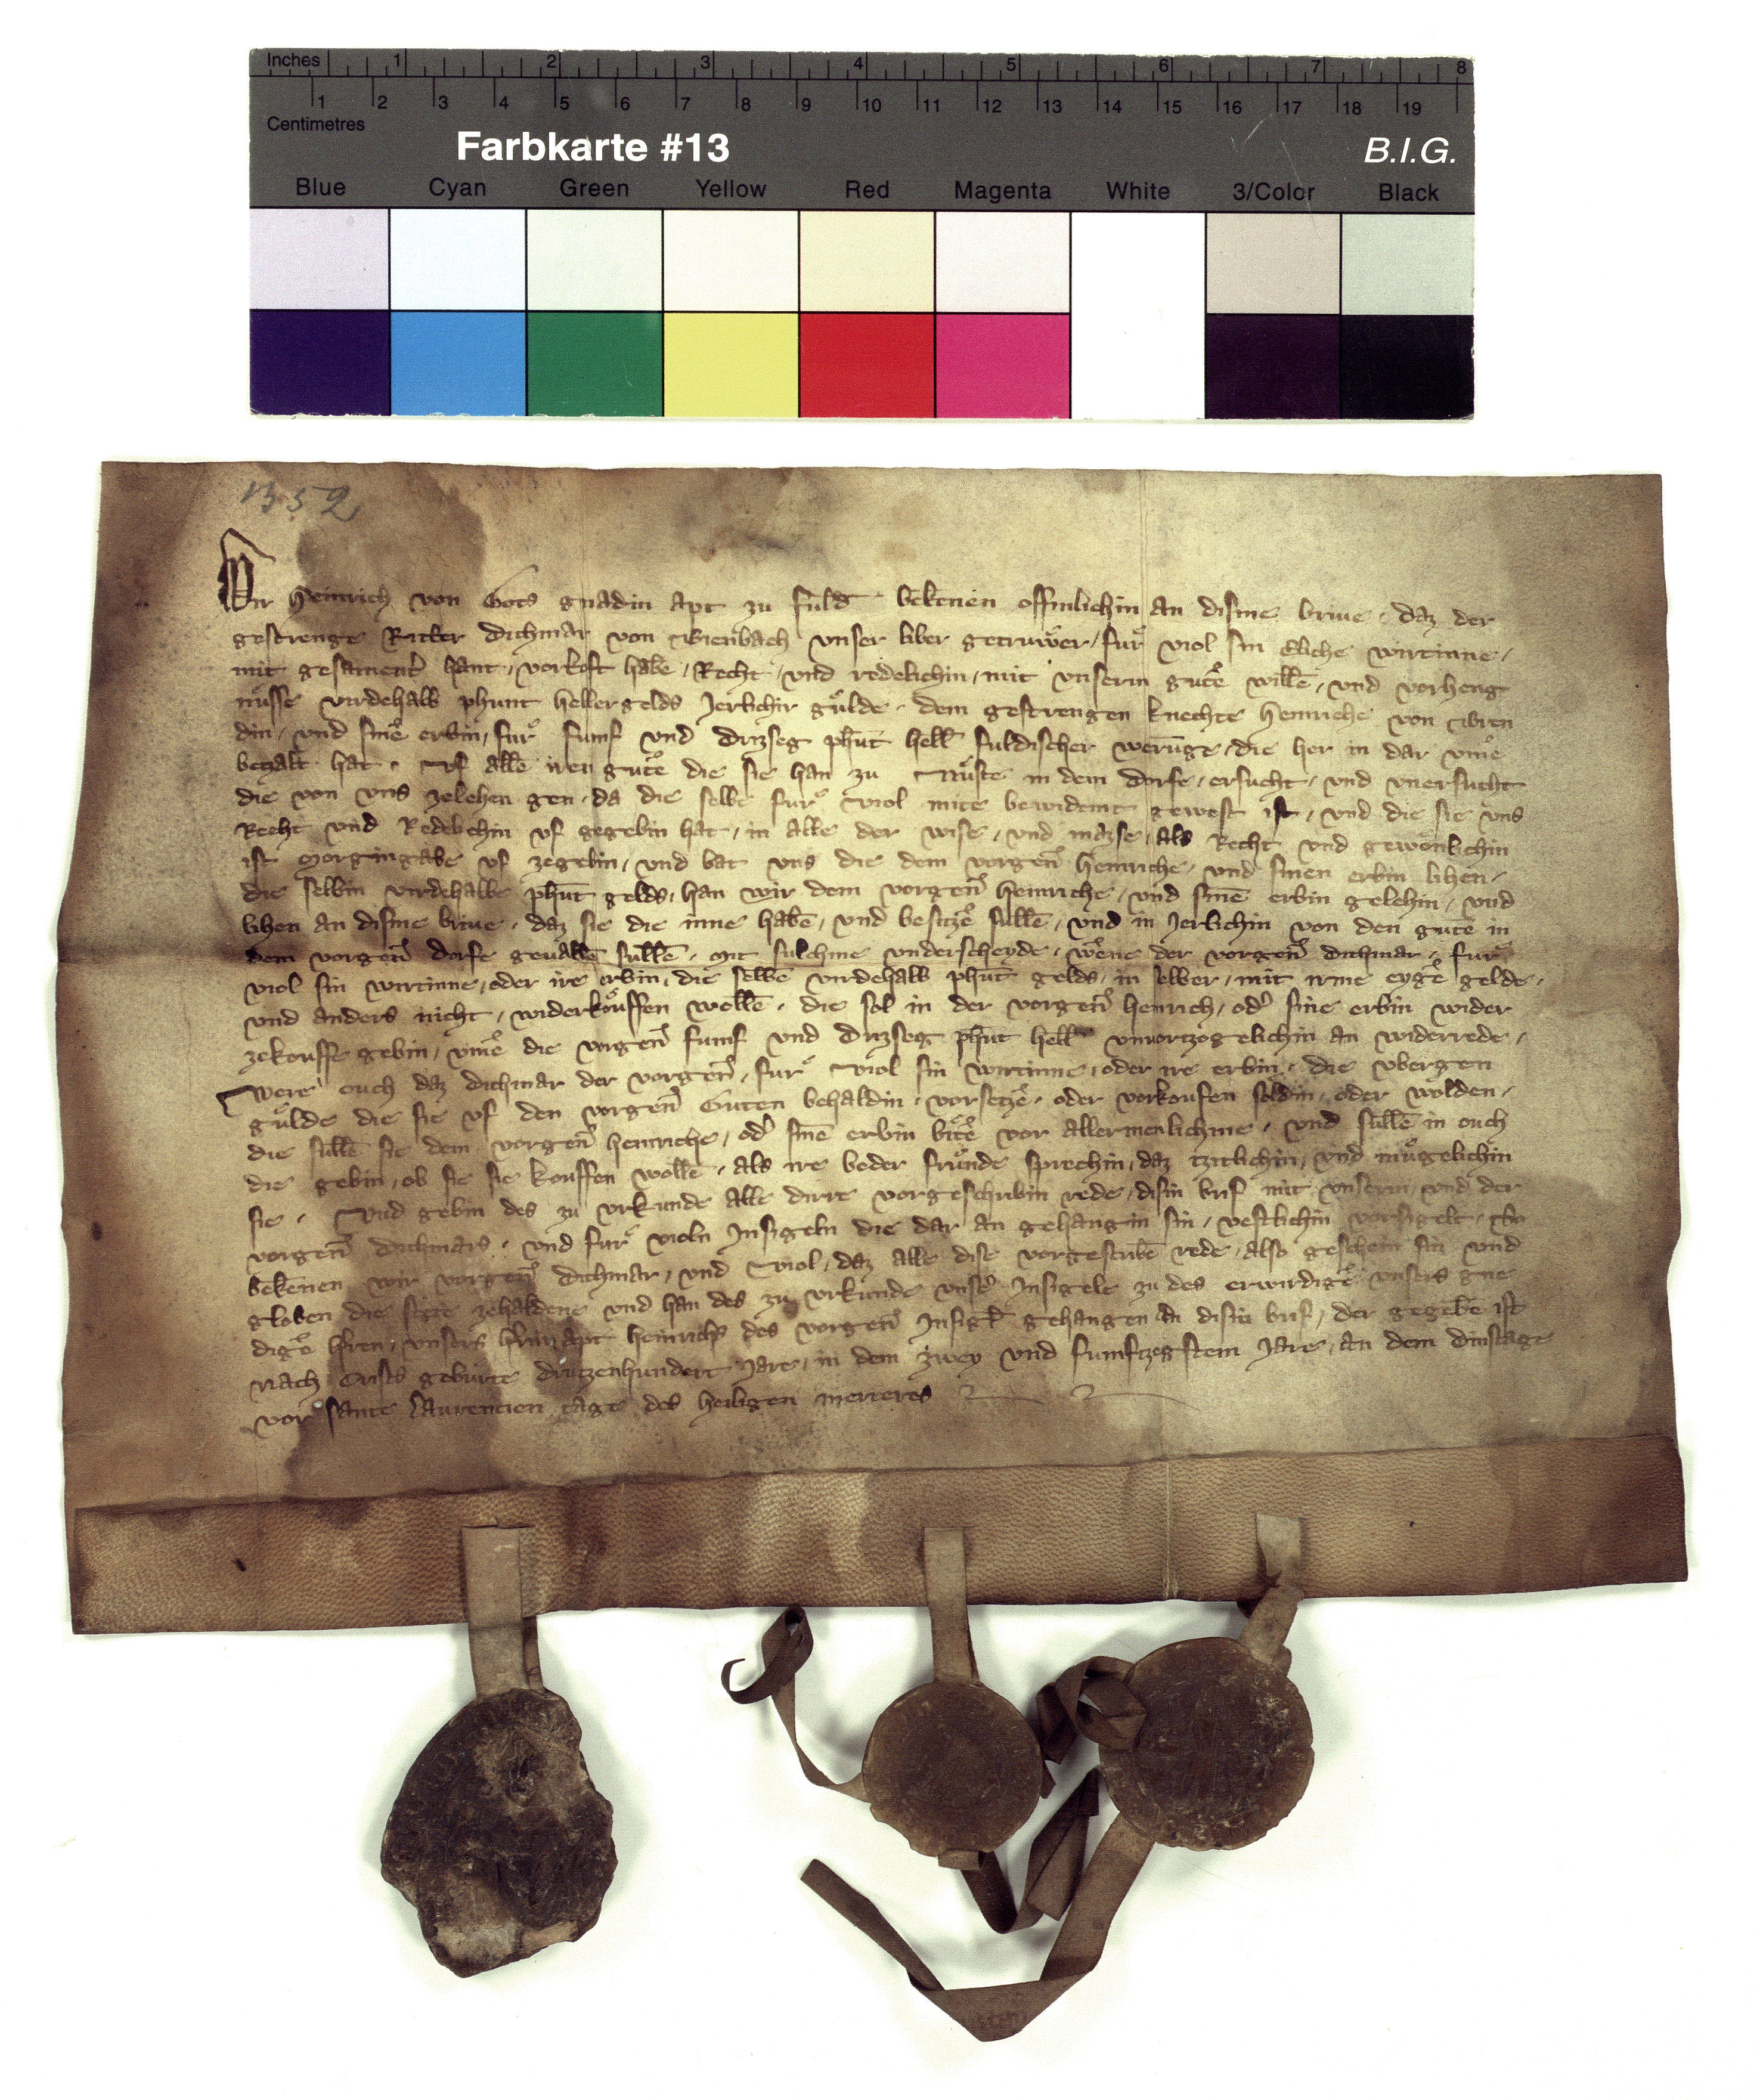 Inches 1 2 3 4 5 6 7 8
1 2 3 4 5 6 7 8 9 10 11 12 13 14 15 16 17 18 19
Centimetres
Farbkarte #13 B.I.G.
Blue Cyan Green Yellow Red Magenta White 3/Color Black
1352
Wir Heinrich von Gots gnadin apt zu fuld bekenen offinlichin an disme brive, daz der
gestrenge Ritter Dithmar von unser liber getruwer, fur viol sin Eliche wirtinne,
mit gesament hant, vorkoft habe, Recht, und redelichin, mit unserm gute wille, und vorheng
nusse virdehalb phunt hellergelds Jerlichir gulde, dem gestrengen knechte Heinriche von
din, und sine erbin, fur fumf und drizseg phut hell fuldischer werunge, die her in dar ume
betzalt hat. uf alle iren gute die sie han zu in dem dorfe, ersucht, und unersucht
die von uns zelehen gen, da die selbe fur viol mite bewidemt gewest ist, und die sie uns
Recht und Redelichin uf gegebin hat, in alle der wise, und mazse, als Recht und gewonlichin
ist Morgingabe uf zegebin, und bat uns die dem vorgen Heinriche, und sinen erbin lihen,
die selbin virdehalbe phut gelds, han wir dem vorgen Heinriche, und sine erbin gelehin, und
lihen an disme brive, daz sie die inne habe, und besitze sulle, und in Jerlichin von den gute in
dem vorgen dorfe gevalle sulle, mit sulchme underscheyde, wene der vorgen Dithmar, fur
viol sin wirtinne, oder ire erbin, die selbe virdehalb phut gelds, in selber, mit irme eyge gelde,
und anders nicht, widerkouffen wolle, die sol in der vorgen Henrich, od sine erbin wider
zekouffe gebin, ume die vorgen fumf und drizseg phut hell unvortzogelichin an widerrede,
Were ouch daz dithmar der vorgen, fur viol sin wirtinne, oder ire erbin, die ubergen
gulde die sie uf den vorgen Guten behaldin, vorsetze, oder vorkoufen soldin, oder wolden,
die sulle sie dem vorgen henriche, od sine erbin bite vor allermenlichme, und sulle in ouch
die gebin, ob sie sie kouffen wolle, als ire beder frunde sprechin, daz tzitlichin, und mugelichin
sie. Und gebin des zu urkunde alle dirre vorgeschribin rede, disin brif mit unserm, und der
vorgen Dithmars, und fur violn Insigeln die dar an gehangin sin, vestlichin vorsigelt.
bekenen wir vorgen Dithmar, und viol, daz alle dise vorgescribe rede, also geschein sin und
globen die stete zehaldene und han des zu urkunde unse Insigele zu des erwirdige unsers gne
dige hren, unsers hern apt Heinrichs des vorgen Insigel gehangen an disin brif, der gegebe ist
nach Crists geburte dritzenhundert Jare, in dem zwey und fumftzegstem Jare, an dem dinstage
vor sante Laurencien tage des heiligen merteres